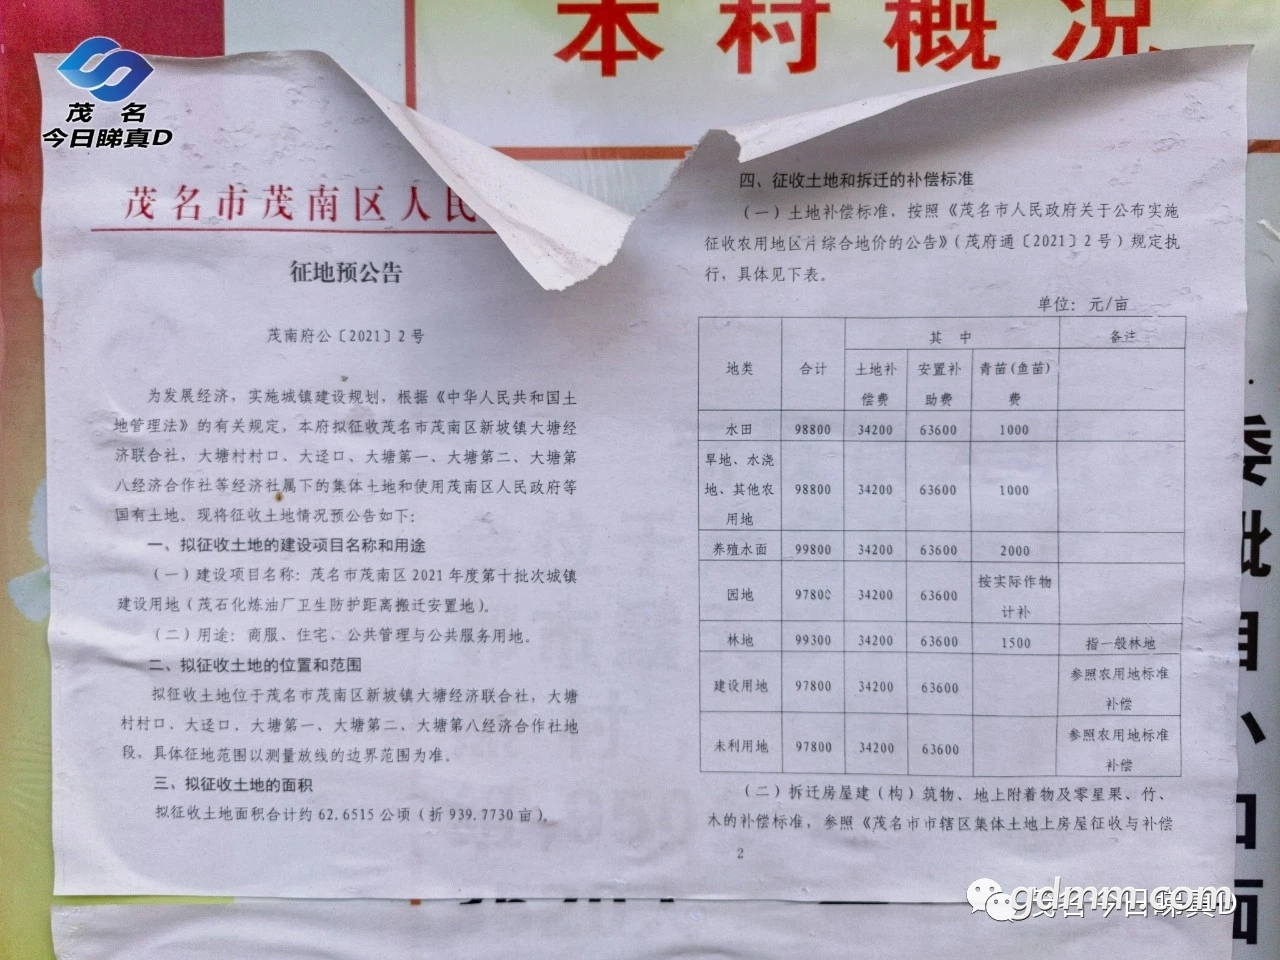 本村概况
茂名
今日睇真D
茂名市茂南区人民
征地预公告
茂南府公〔2021〕2号
为发展经济，实施城镇建设规划，根据《中华人民共和国土
地管理法》的有关规定，本府拟征收茂名市茂南区新坡镇大塘经
济联合社，大塘村村口、大迳口、大塘第一、大塘第二、大塘第
八经济合作社等经济社属下的集体土地和使用茂南区人民政府等
国有土地。现将征收土地情况预公告如下：
一、拟征收土地的建设项目名称和用途
（一）建设项目名称：茂名市茂南区2021年度第十批次城镇
建设用地（茂石化炼油厂卫生防护距离搬迁安置地）。
（二）用途：商服、住宅、公共管理与公共服务用地。
二、拟征收土地的位置和范围
拟征收土地位于茂名市茂南区新坡镇大塘经济联合社，大塘
村村口、大迳口、大塘第一、大塘第二、大塘第八经济合作社地
段，具体征地范围以测量放线的边界范围为准。
三、拟征收土地的面积
拟征收土地面积合计约62.6515公顷（折939.7730亩）。
四、征收土地和拆迁的补偿标准
（一）土地补偿标准，按照《茂名市人民政府关于公布实施
征收农用地区片综合地价的公告》（茂府通〔2021〕2号）规定执
行，具体见下表。
单位：元/亩
地类 合计 其中 备注
土地补偿费 安置补助费 青苗(鱼苗)费
水田 98800 34200 63600 1000
旱地、水浇地、其他农用地 98800 34200 63600 1000
养殖水面 99800 34200 63600 2000
园地 97800 34200 63600 按实际作物计补
林地 99300 34200 63600 1500 指一般林地
建设用地 97800 34200 63600 参照农用地标准补偿
未利用地 97800 34200 63600 参照农用地标准补偿
（二）拆迁房屋建（构）筑物、地上附着物及零星果、竹、
木的补偿标准，参照《茂名市市辖区集体土地上房屋征收与补偿
2
gdmm.com
茂名今日睇真D